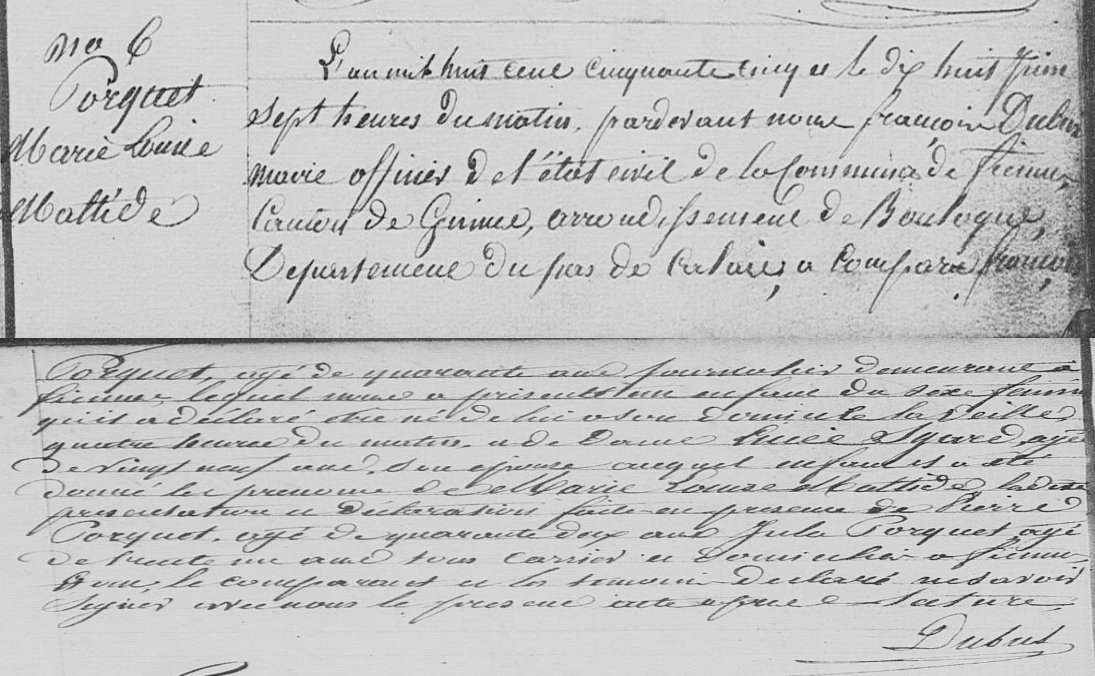 No 6
Porquet
Marie Louise
Mattide
L'an mil huit cent cinquante cinq et le dix huit Juin
sept heures du matin, pardevant nous françois Dubut
maire officier de l'état civil de la Commune de fiennes,
Canton de Guines, arrondissement de Boulogne,
Département du pas de Calais, a comparu françois
Porquet, agé de quarante ans journalier demeurant à
fiennes lequel nous a présenté un enfant du sexe féminin
qu'il a déclaré être né de lui à son domicile la veille
quatre heures du matin, et de Dame Lucie Ligard, agée
de vingt neuf ans, son épouse auquel enfant il a été
donné les prénoms de Marie Louise Mattide ladite
présentation et déclaration faite en présence de Pierre
Porquet, agé de quarante deux ans Jules Porquet agé
de trente un ans tous carrier et domicilié à fiennes
le comparant et les témoins déclaré ne savoir
signer avec nous le présent acte lecture,
Dubut